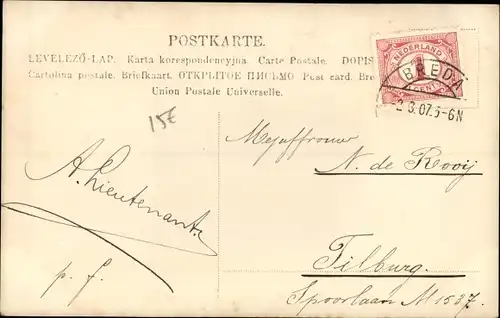 POSTKARTE.
LEVELEZŐ-LAP. Karta korespondencyjna. Carte Postale. DOPIS
Cartolina postale. Briefkaart. ОТКРЫТОЕ ПИСЬМО Post card. Bre
Union Postale Universelle.
NEDERLAND
1
CENT
BREDA
2 3.07.5-6N
15E
Mejuffrouw
N. de Rooij
Tilburg.
Spoorlaan M 1537.
A. Lieutenant.
p. f.